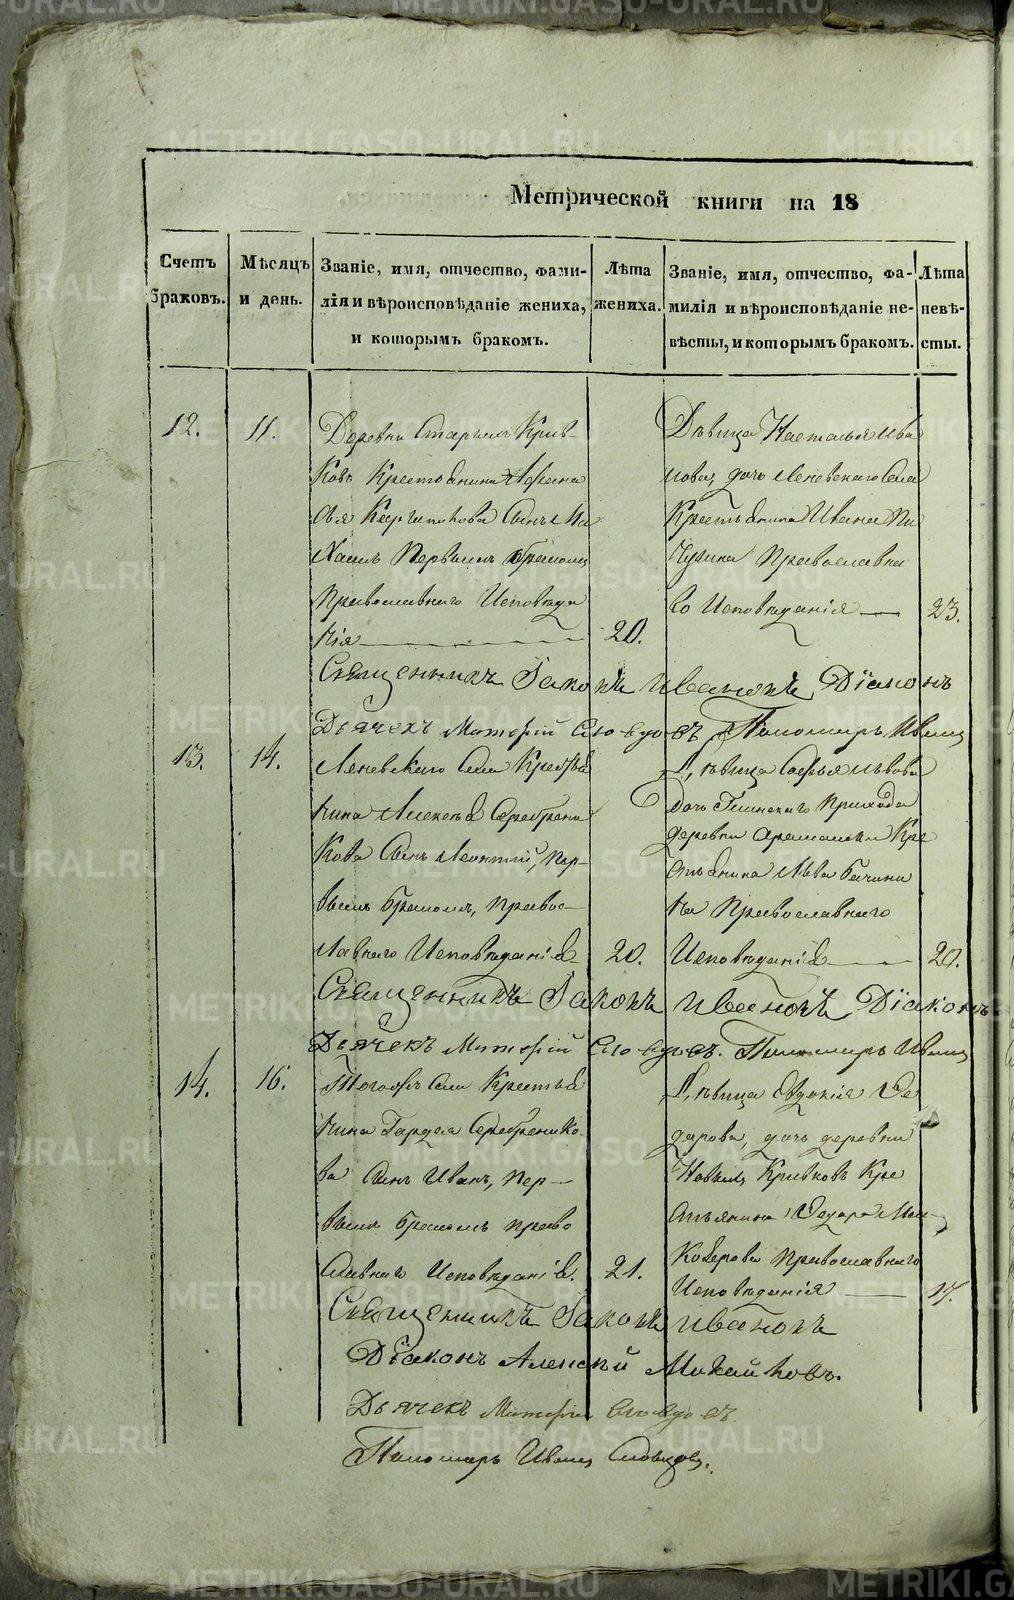 METRIKI.GASO-URAL.RU
Метрической книги на 18
Счетъ браковъ.
Мѣсяцъ и день.
Званіе, имя, отчество, фами-
лія и вѣроисповѣданіе жениха,
и которымъ бракомъ.
Лѣта жениха.
Званіе, имя, отчество, фа-
милія и вѣроисповѣданіе не-
вѣсты, и которымъ бракомъ.
Лѣта невѣ-
сты.
12.
11.
Деревни Старыхъ Крив-
ковъ Крестьянина Афана
сья сынъ Ми
хаилъ первымъ бракомъ
Православнаго Исповѣда
нія
20.
Дѣвица Наталья Ива
нова, дочь Леневскаго Села
Крестьянина Ивана Пи
чугина Православна
го Исповѣданія
23.
Священникъ Іаковъ Ивановъ Діаконъ
Дьячекъ Пономарь Иванъ
13.
14.
Леневскаго Села Крестья
нина Алексѣя Серебрени
кова сынъ Леонтій, пер-
вымъ бракомъ, правос-
лавнаго Исповѣданія
20.
Дѣвица Софья Львова
дочь Глинскаго Прихода
деревни Кре
стьянина Льва
на Православнаго
Исповѣданія
20.
Священникъ Іаковъ Ивановъ Діаконъ
Дьячекъ Пономарь Иванъ
14.
16.
Тогожъ Села Крестья
нина Гордея Серебренико-
ва сынъ Иванъ, пер-
вымъ бракомъ право
славнаго Исповѣданія.
21.
Дѣвица Евдокія Ѳе
дорова, дочь деревни
Новыхъ Кривковъ Кре
стьянина Ѳедора
Православнаго
Исповѣданія
17.
Священникъ Іаковъ Ивановъ
Діаконъ Алексѣй Михайловъ.
Дьячекъ
Пономарь Иванъ Словцовъ.